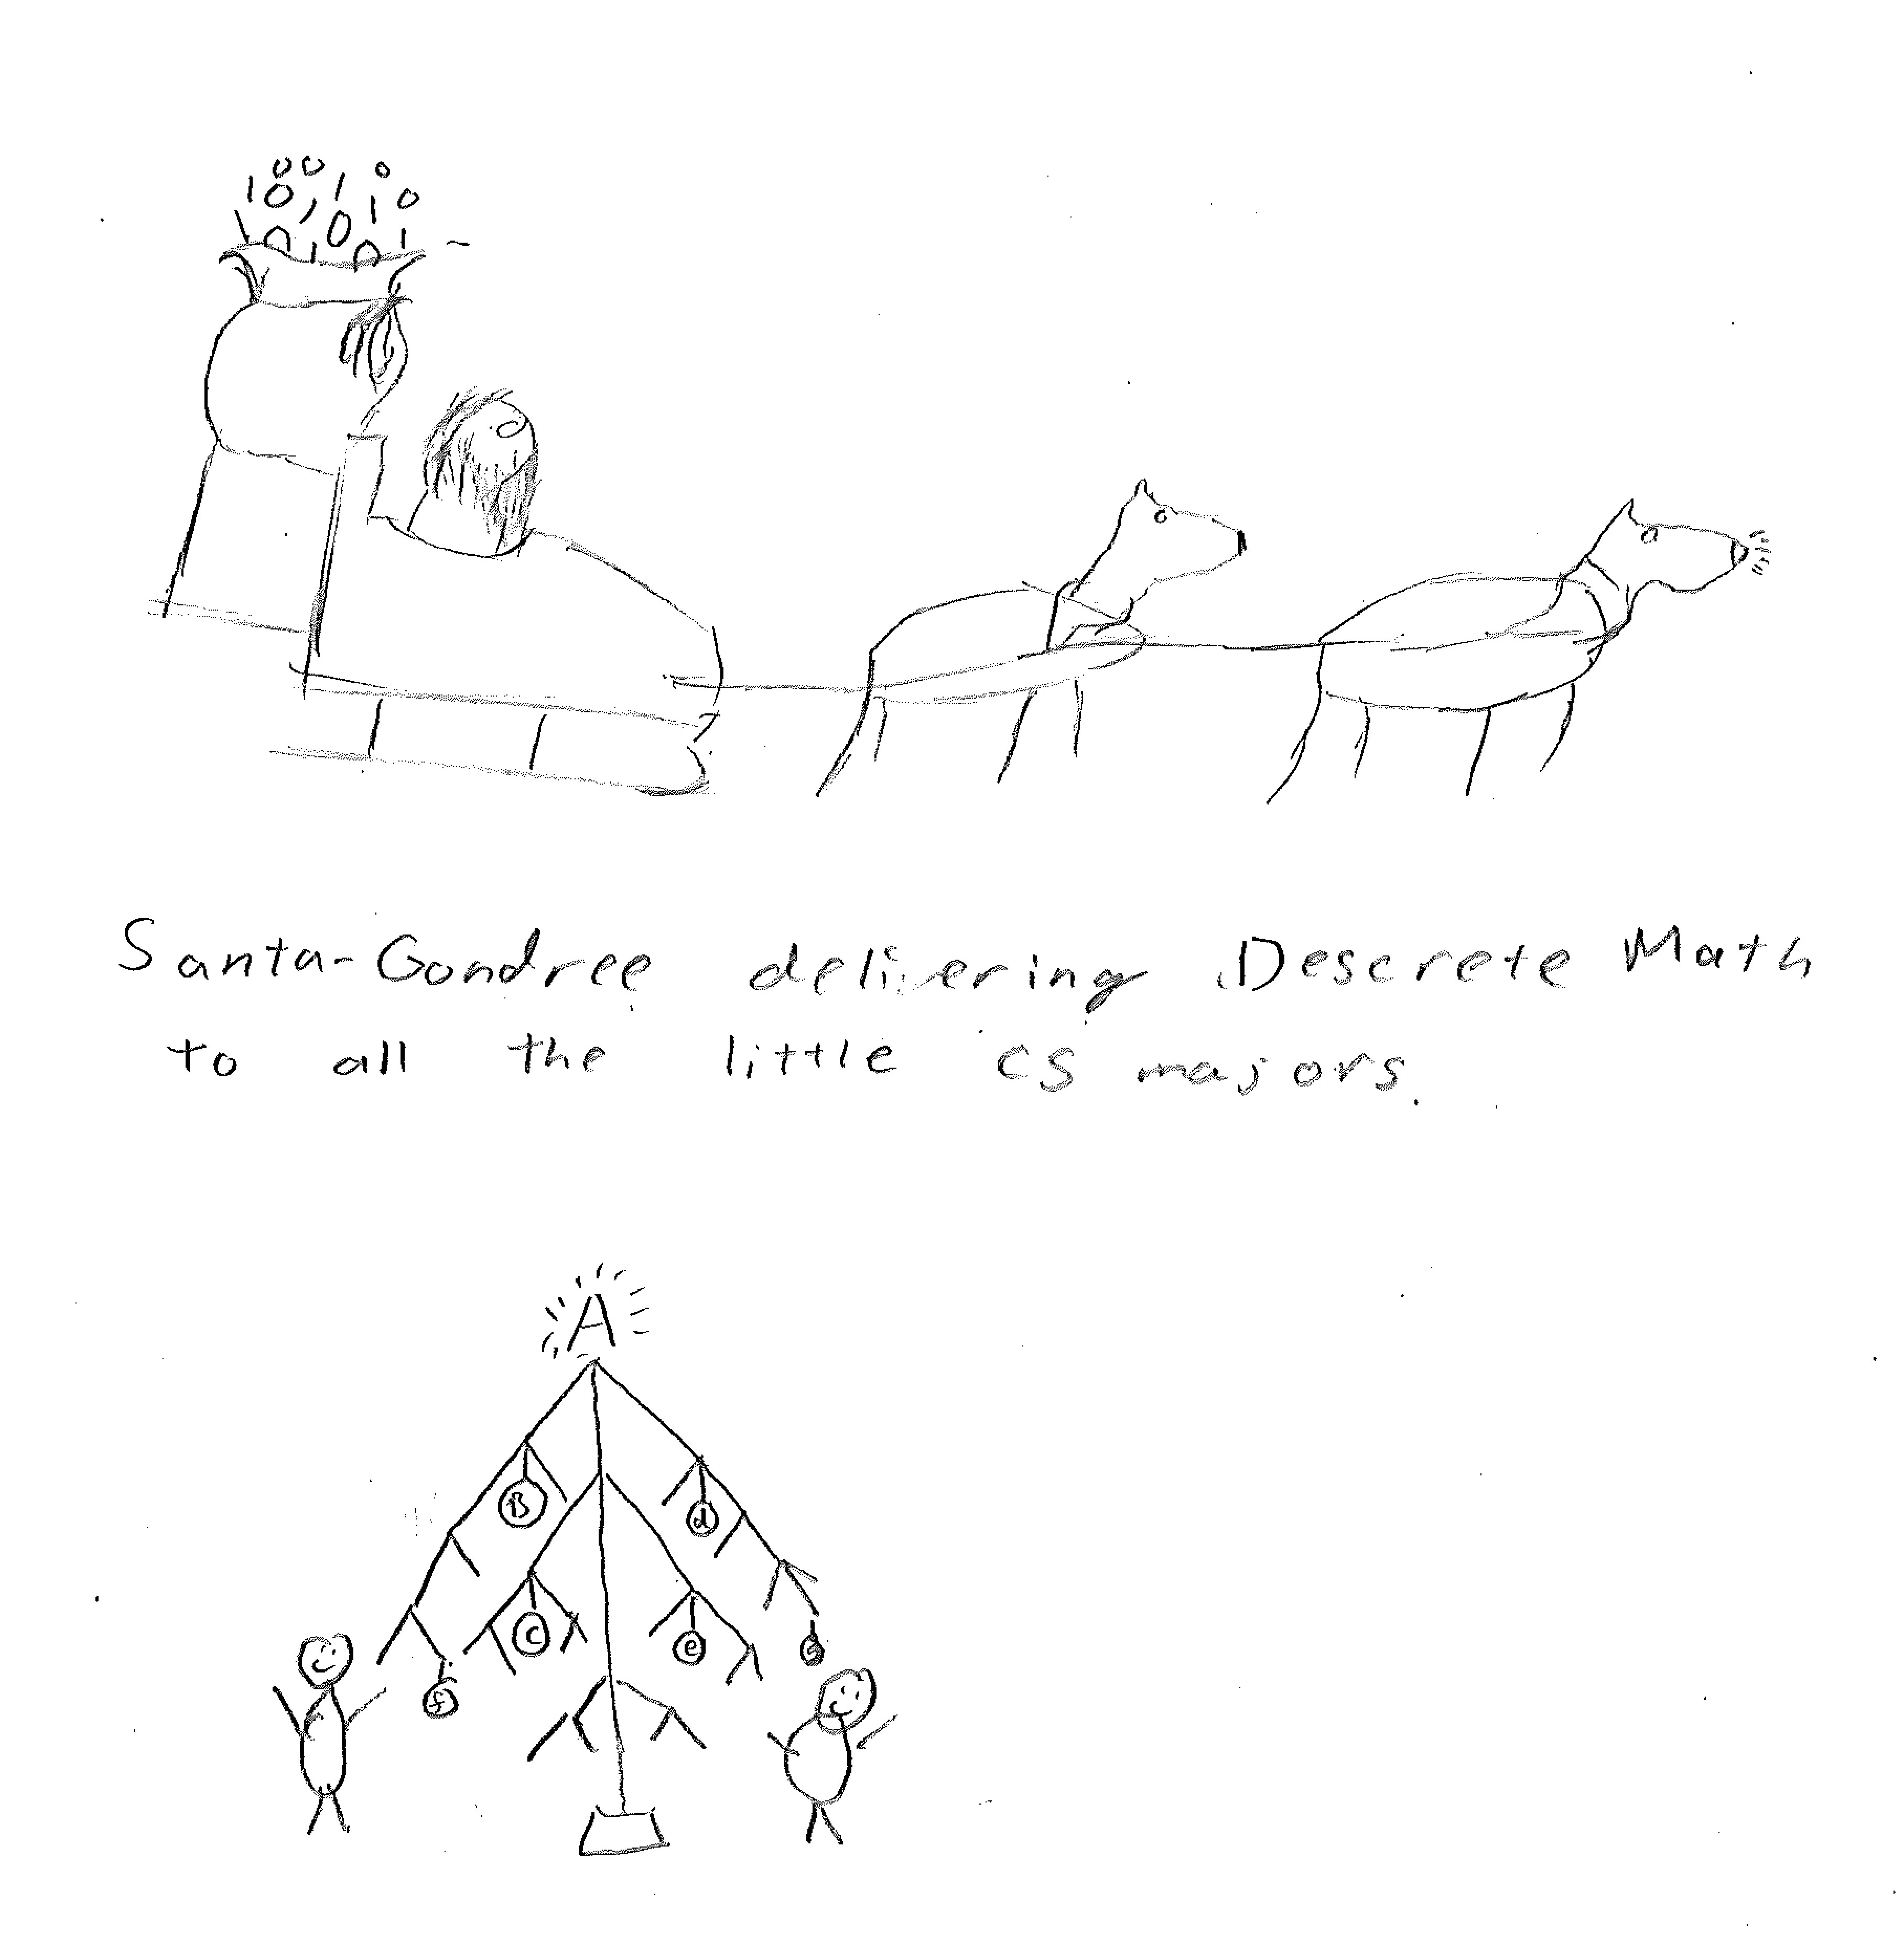 1 0 0 0 1 0
1 0 1 0
Santa-Gondree delivering Descrete Math
to all the little CS majors.
A
B
d
c
e
f